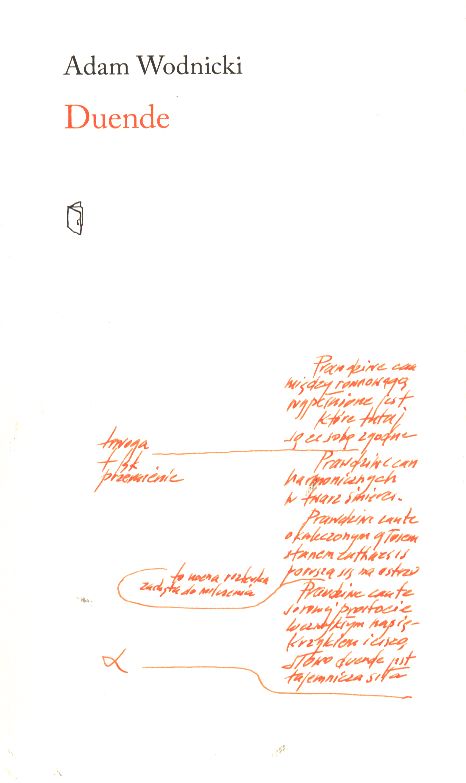 Adam Wodnicki
Duende
Prawdziwe can
między równowagą
wypełnione jest
które tutaj
są ze sobą zgodne
trwoga
przemienie
Prawdziwe can
harmonicznych
w twarz śmierci.
Prawdziwe cante
okaleczonym głosem
stanem catharsis
porusza się na ostrzu
to nocna rozterka
zaczęta do milczenia
Prawdziwe cante
surowej prostocie
krzykiem i ciszą
słowo duende jest
tajemnicza siła